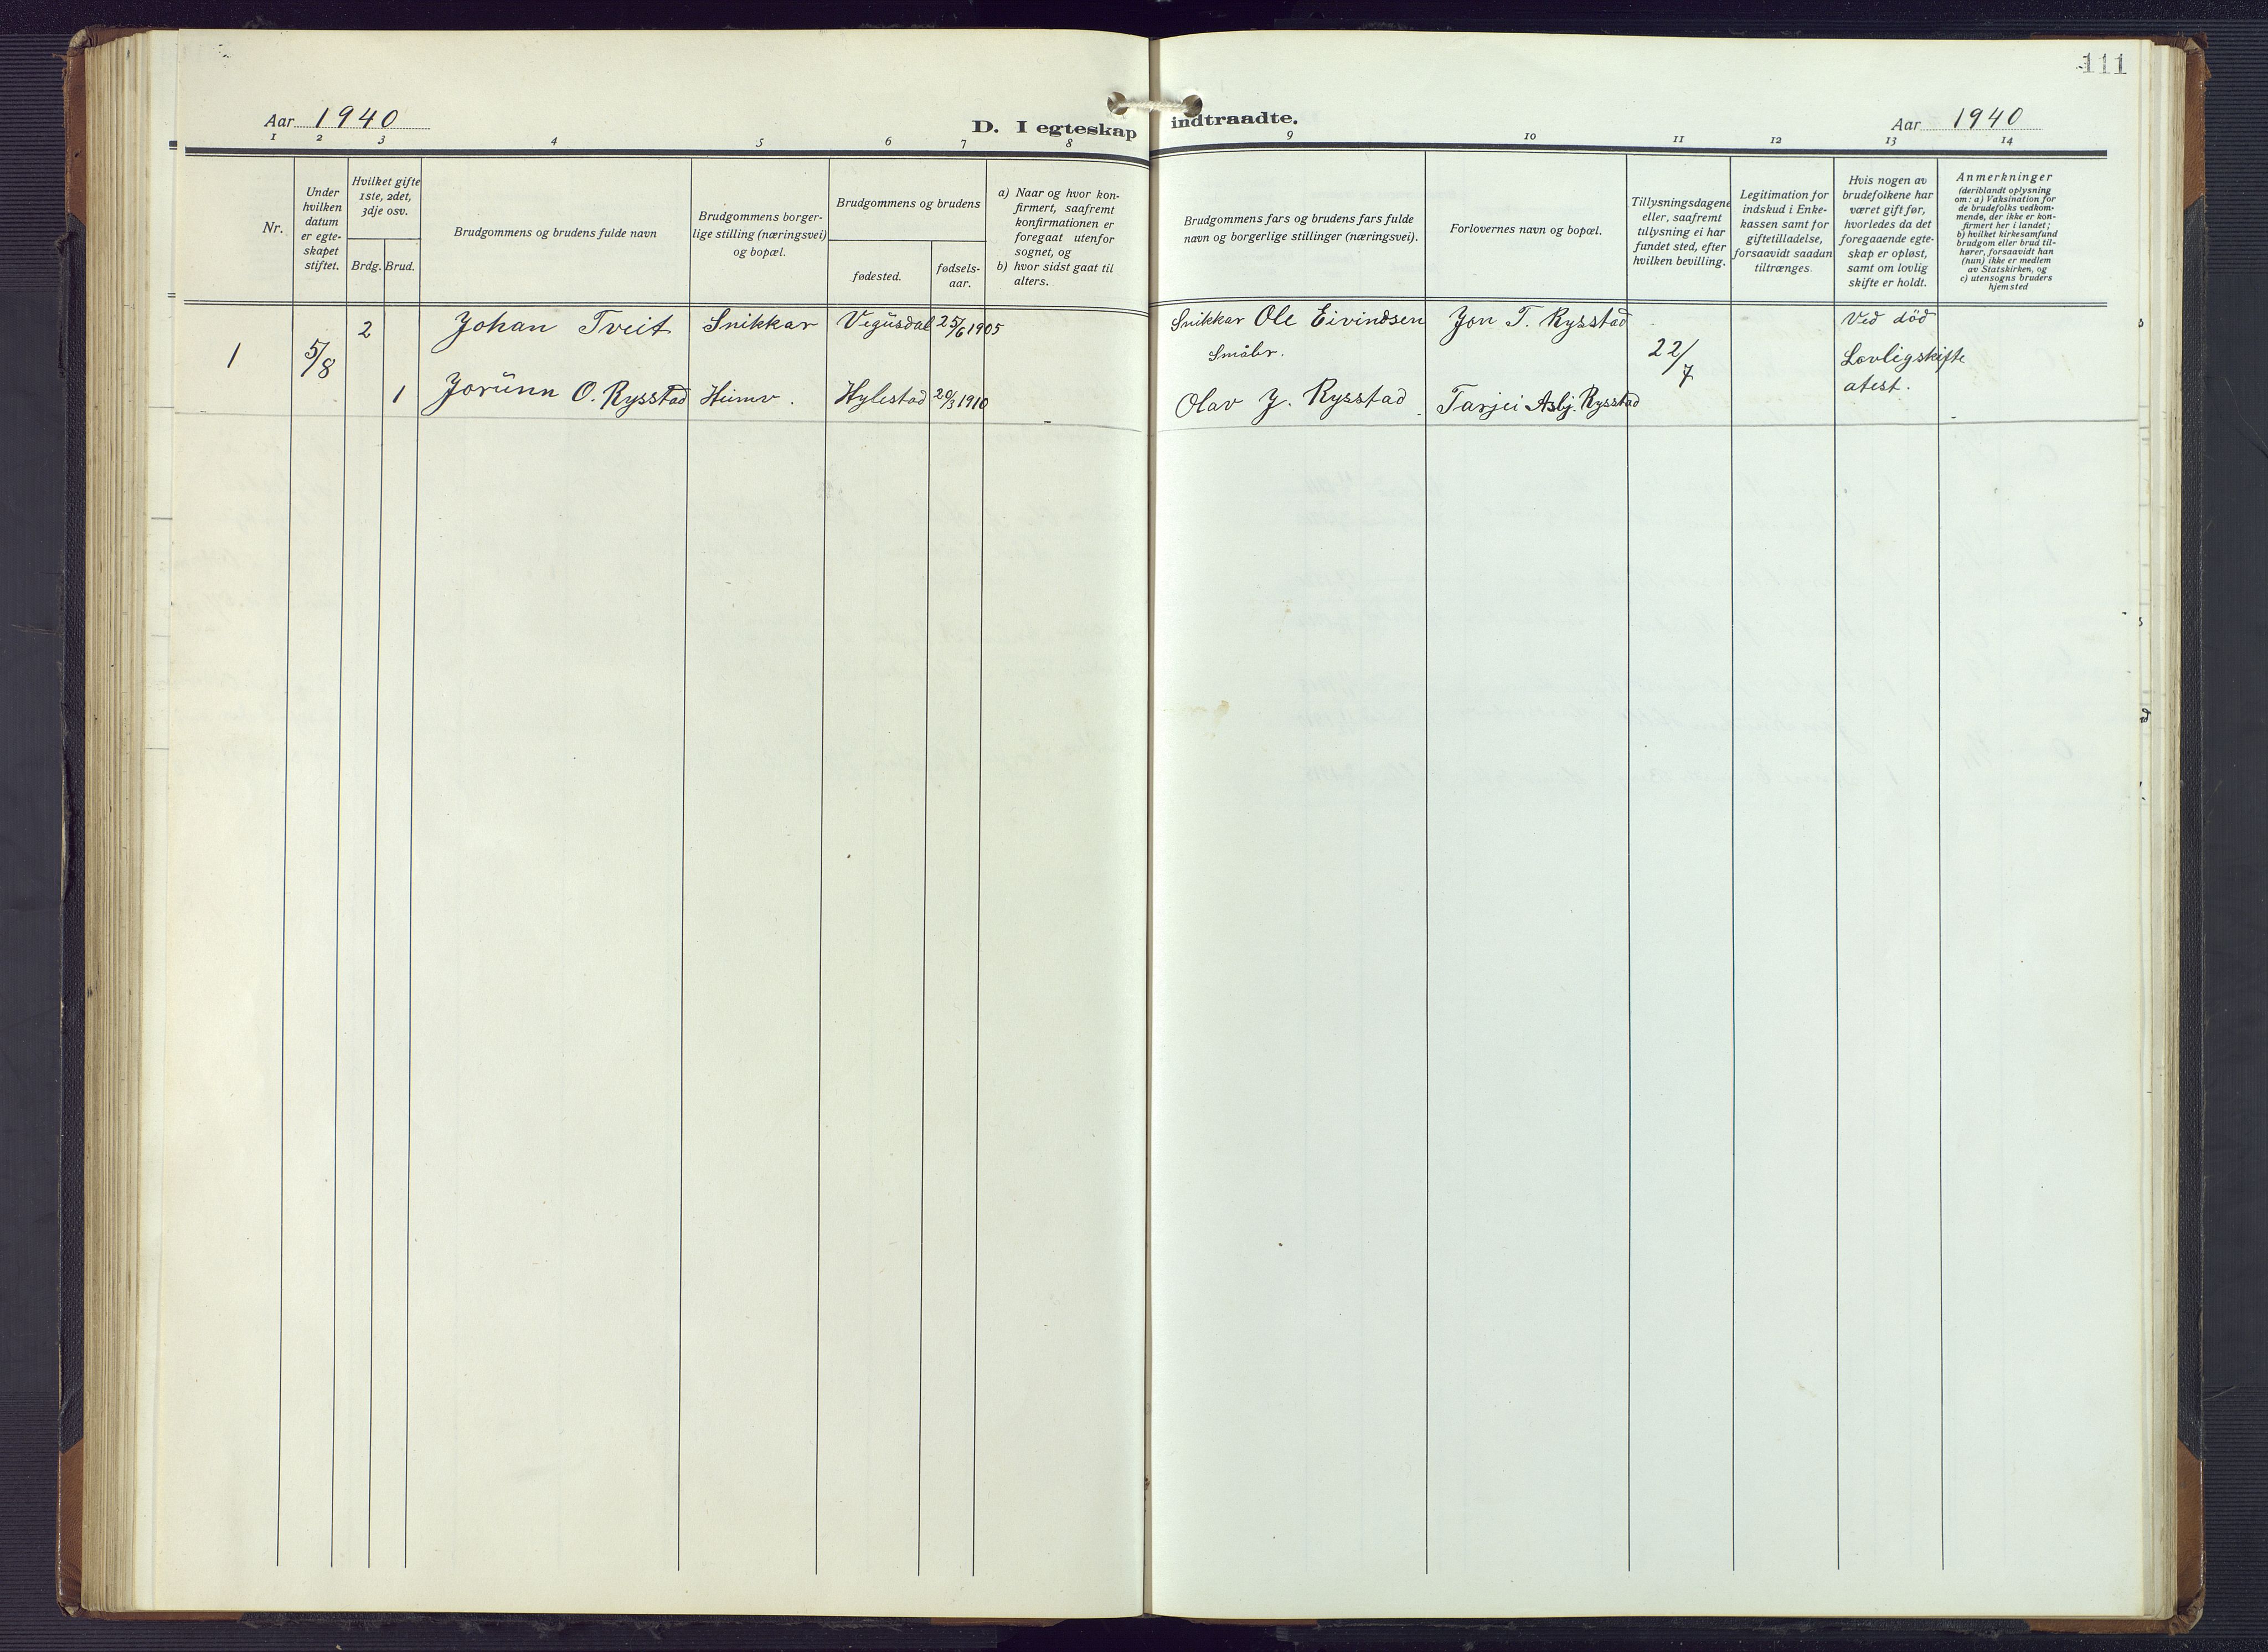 111
Aar 1940
D. I egteskap indtraadte.
Aar 1940
1 2 3 4 5 6 7 8 9 10 11 12 13 14
Nr.
Under hvilken datum er egte-skapet stiftet.
Hvilket gifte 1ste, 2det, 3dje osv.
Brdg. Brud.
Brudgommens og brudens fulde navn
Brudgommens borger-lige stilling (næringsvei) og bopæl.
Brudgommens og brudens
fødested.
fødsels-aar.
a) Naar og hvor kon-firmert, saafremt konfirmationen er foregaat utenfor sognet, og
b) hvor sidst gaat til alters.
Brudgommens fars og brudens fars fulde navn og borgerlige stillinger (næringsvei).
Forlovernes navn og bopæl.
Tillysningsdagene eller, saafremt tillysning ei har fundet sted, efter hvilken bevilling.
Legitimation for indskud i Enke-kassen samt for giftetilladelse, forsaavidt saadan tiltrænges.
Hvis nogen av brudefolkene har været gift før, hvorledes da det foregaaende egte-skap er opløst, samt om lovlig skifte er holdt.
Anmerkninger (deriblandt oplysning om: a) Vaksination for de brudefolks vedkom-mende, der ikke er kon-firmert her i landet; b) hvilket kirkesamfund brudgom eller brud til-hører, forsaavidt han (hun) ikke er medlem av Statskirken, og c) utensogns bruders hjemsted
1 5/8
2 Johan Tveit Snikkar Vegusdal 25/6 1905 Snikkar Ole Eivindsen Jon T. Rysstad Ved død
Småbr. 22/7 Lovligskifte
1 Jorunn O. Rysstad Heimv. Hylestad 20/3 1910 Olav J. Rysstad Tarjei Asbj. Rysstad atest.